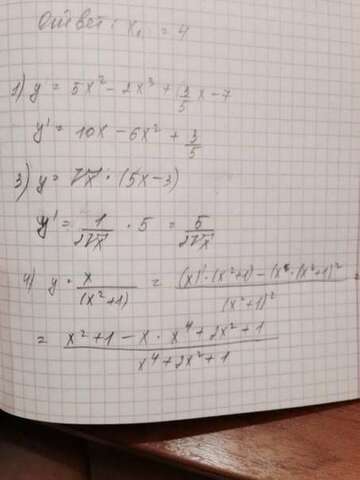 Ответ: x₁ = 4
1) y = 5x² - 2x³ + 3/5 x - 7
y' = 10x - 6x² + 3/5
3) y = √x · (5x - 3)
y' = 1/(2√x) · 5 = 5/(2√x)
4) y · x/(x²+1) = ((x)' · (x²+1) - (x · (x²+1)²)/(x²+1)² =
= (x² + 1 - x · x⁴ + 2x² + 1)/(x⁴ + 2x² + 1)